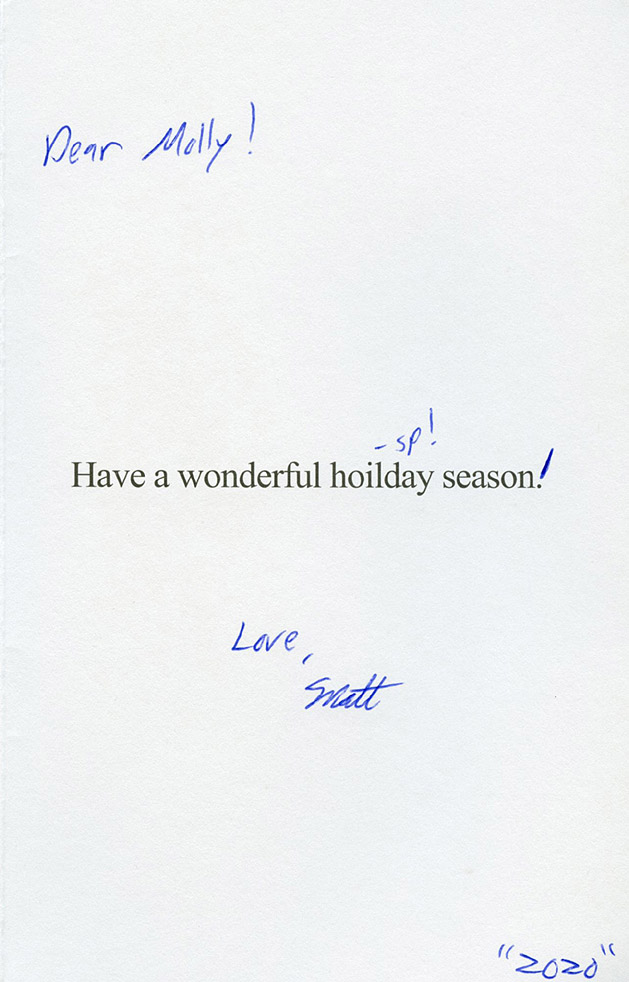 Dear Molly!
-sp!
Have a wonderful hoilday season.!
Love,
Matt
"2020"